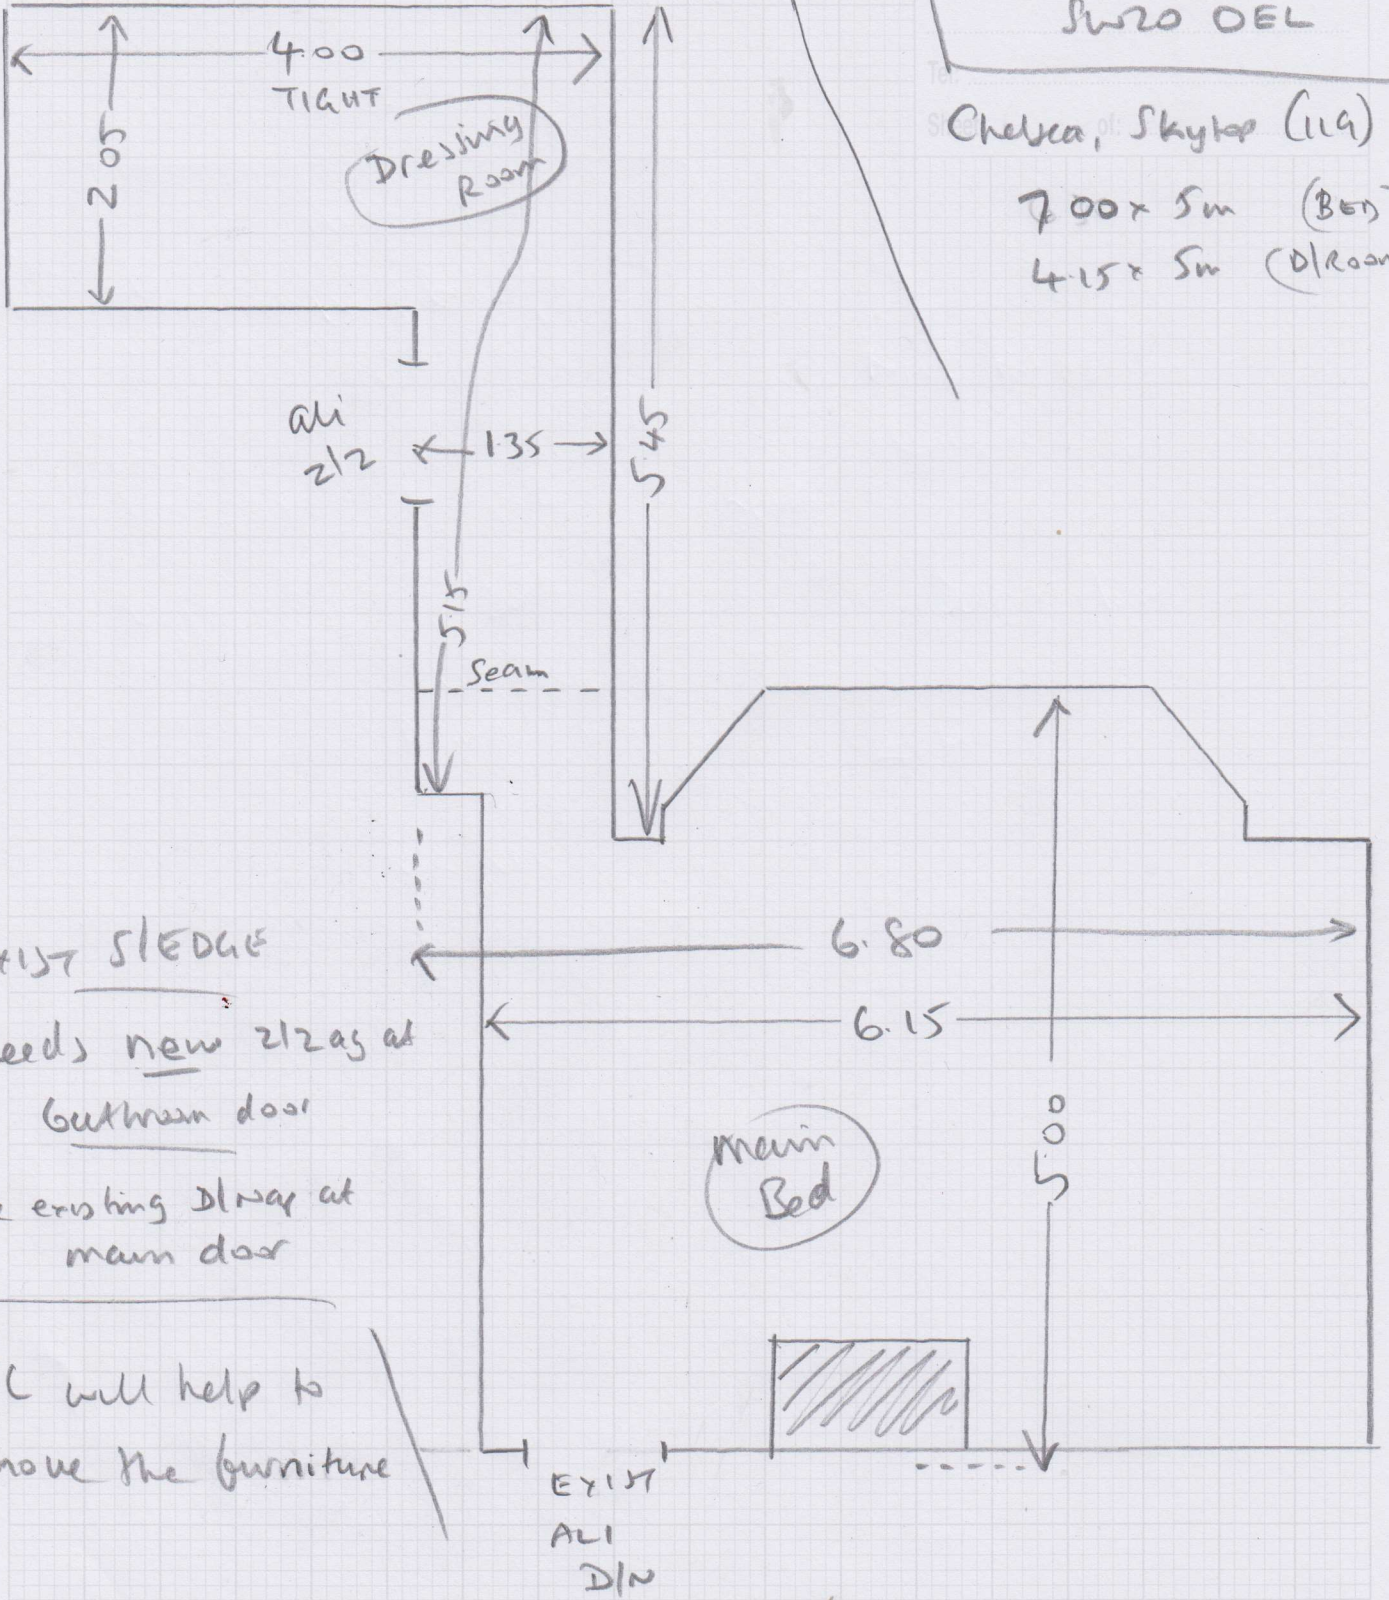 SW20 0EL
Chelsea, Skytop (119)
7.00 x 5m (BED
4.15 x 5m (D/ROOM
4.00
TIGHT
2.05
Dressing
Room
ali
2/2
1.35
5.45
5.15
Seam
6.80
6.15
5.00
Main
Bed
EXIST S/EDGE
eeds new 2/2ag at
bathroom door
existing D/Nap at
main door
C will help to
move the furniture
EXIST
ALI
D/N